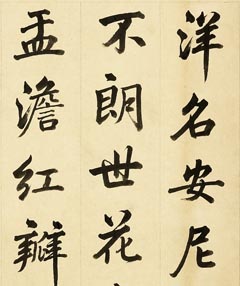 洋名安尼
不朗世花
盂澹红瓣